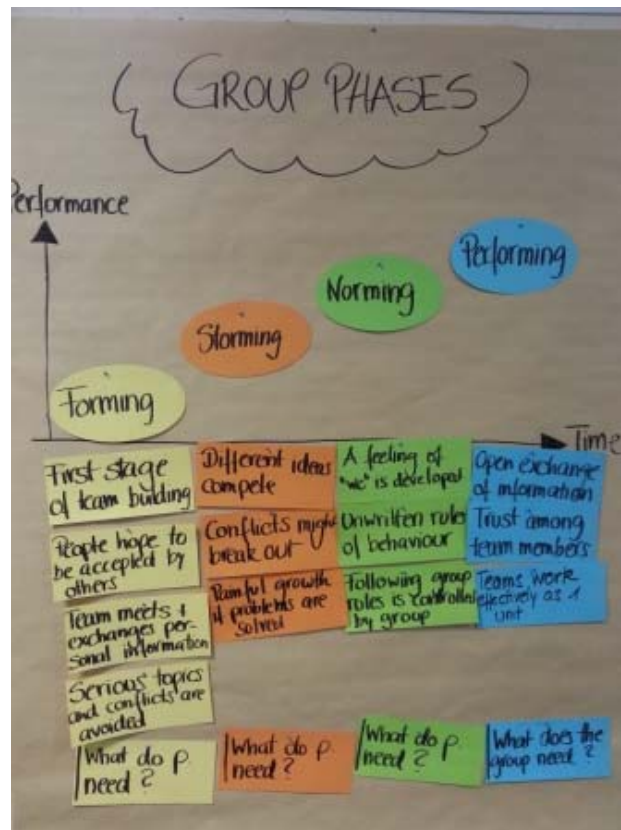 GROUP PHASES
Performance
Performing
Norming
Storming
Forming
Time
First stage
of team building
People hope to
be accepted by
others
Team meets +
exchanges per-
sonal information
Serious topics
and conflicts are
avoided
What do p.
need?
Different ideas
compete
Conflicts might
break out
Painful growth
if problems are
solved
What do p.
need?
A feeling of
"we" is developed
Unwritten rules
of behaviour
Following group
roles is controlled
by group
What do p.
need?
Open exchange
of information
Trust among
team members
Teams work
effectively as 1
unit
What does the
group need?